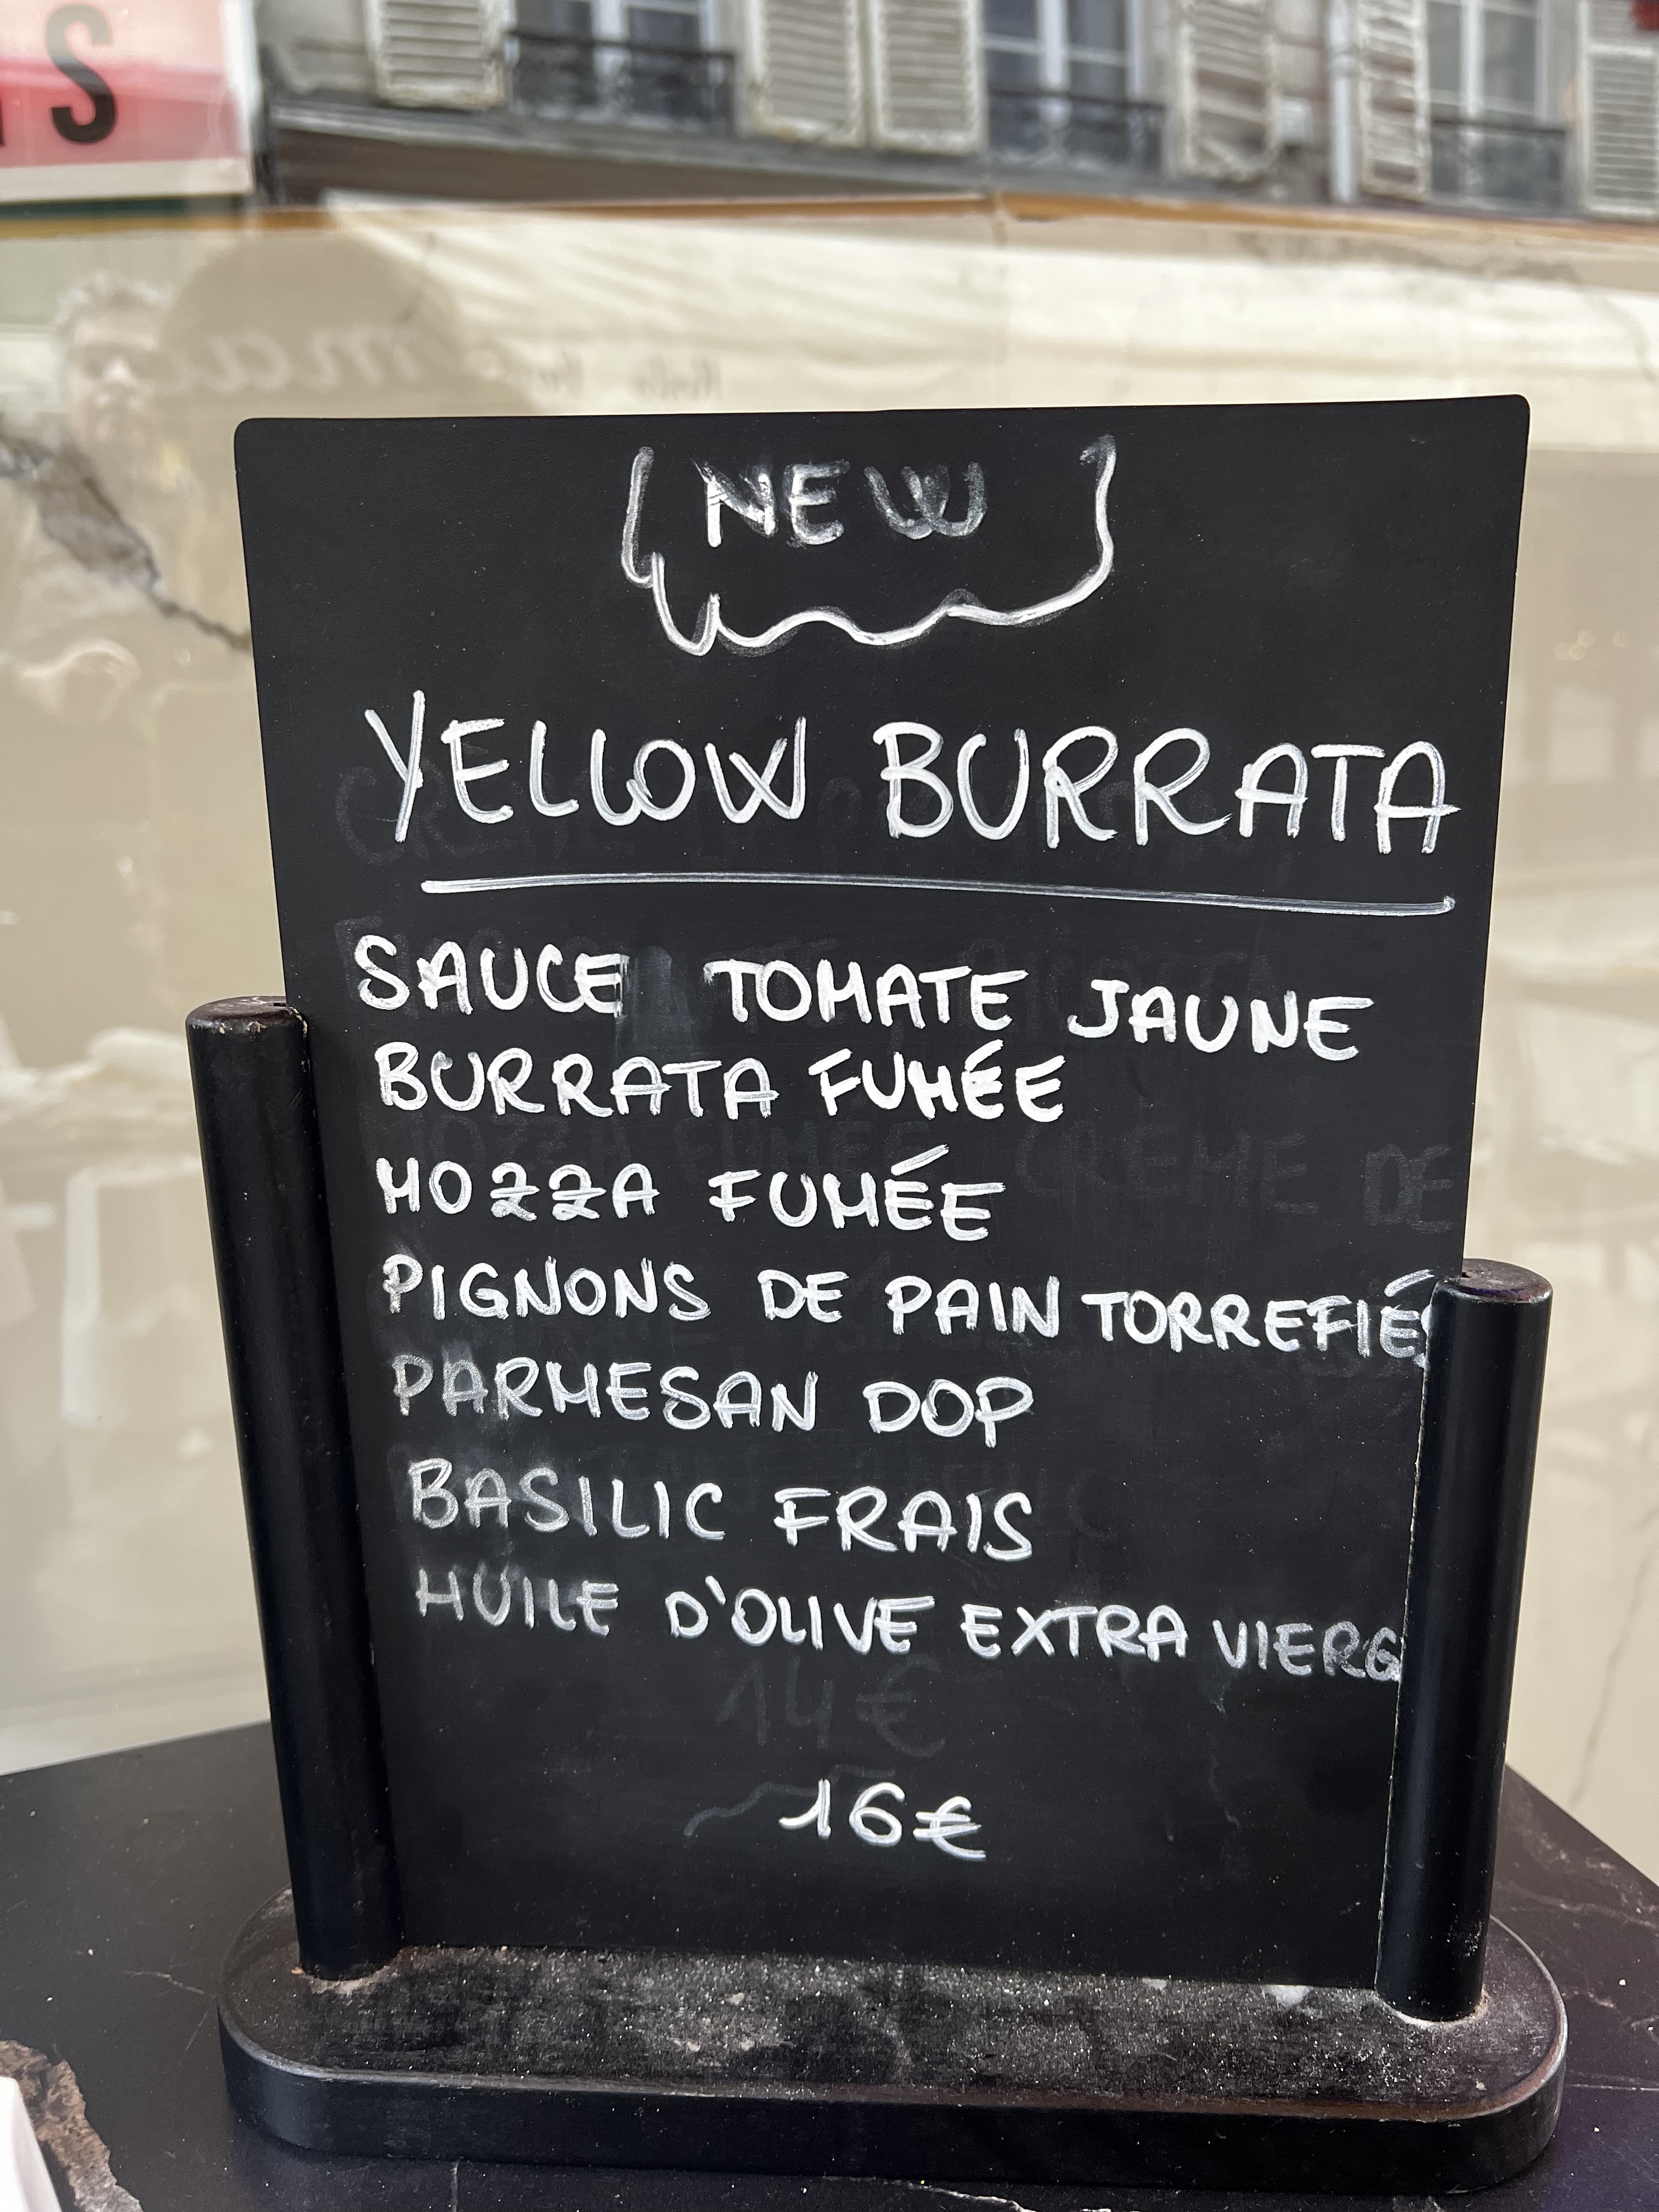 NEW
YELLOW BURRATA
SAUCE TOMATE JAUNE
BURRATA FUMÉE
MOZZA FUMÉE
PIGNONS DE PAIN TORREFIÉS
PARMESAN DOP
BASILIC FRAIS
HUILE D'OLIVE EXTRA VIERG
14€
16€